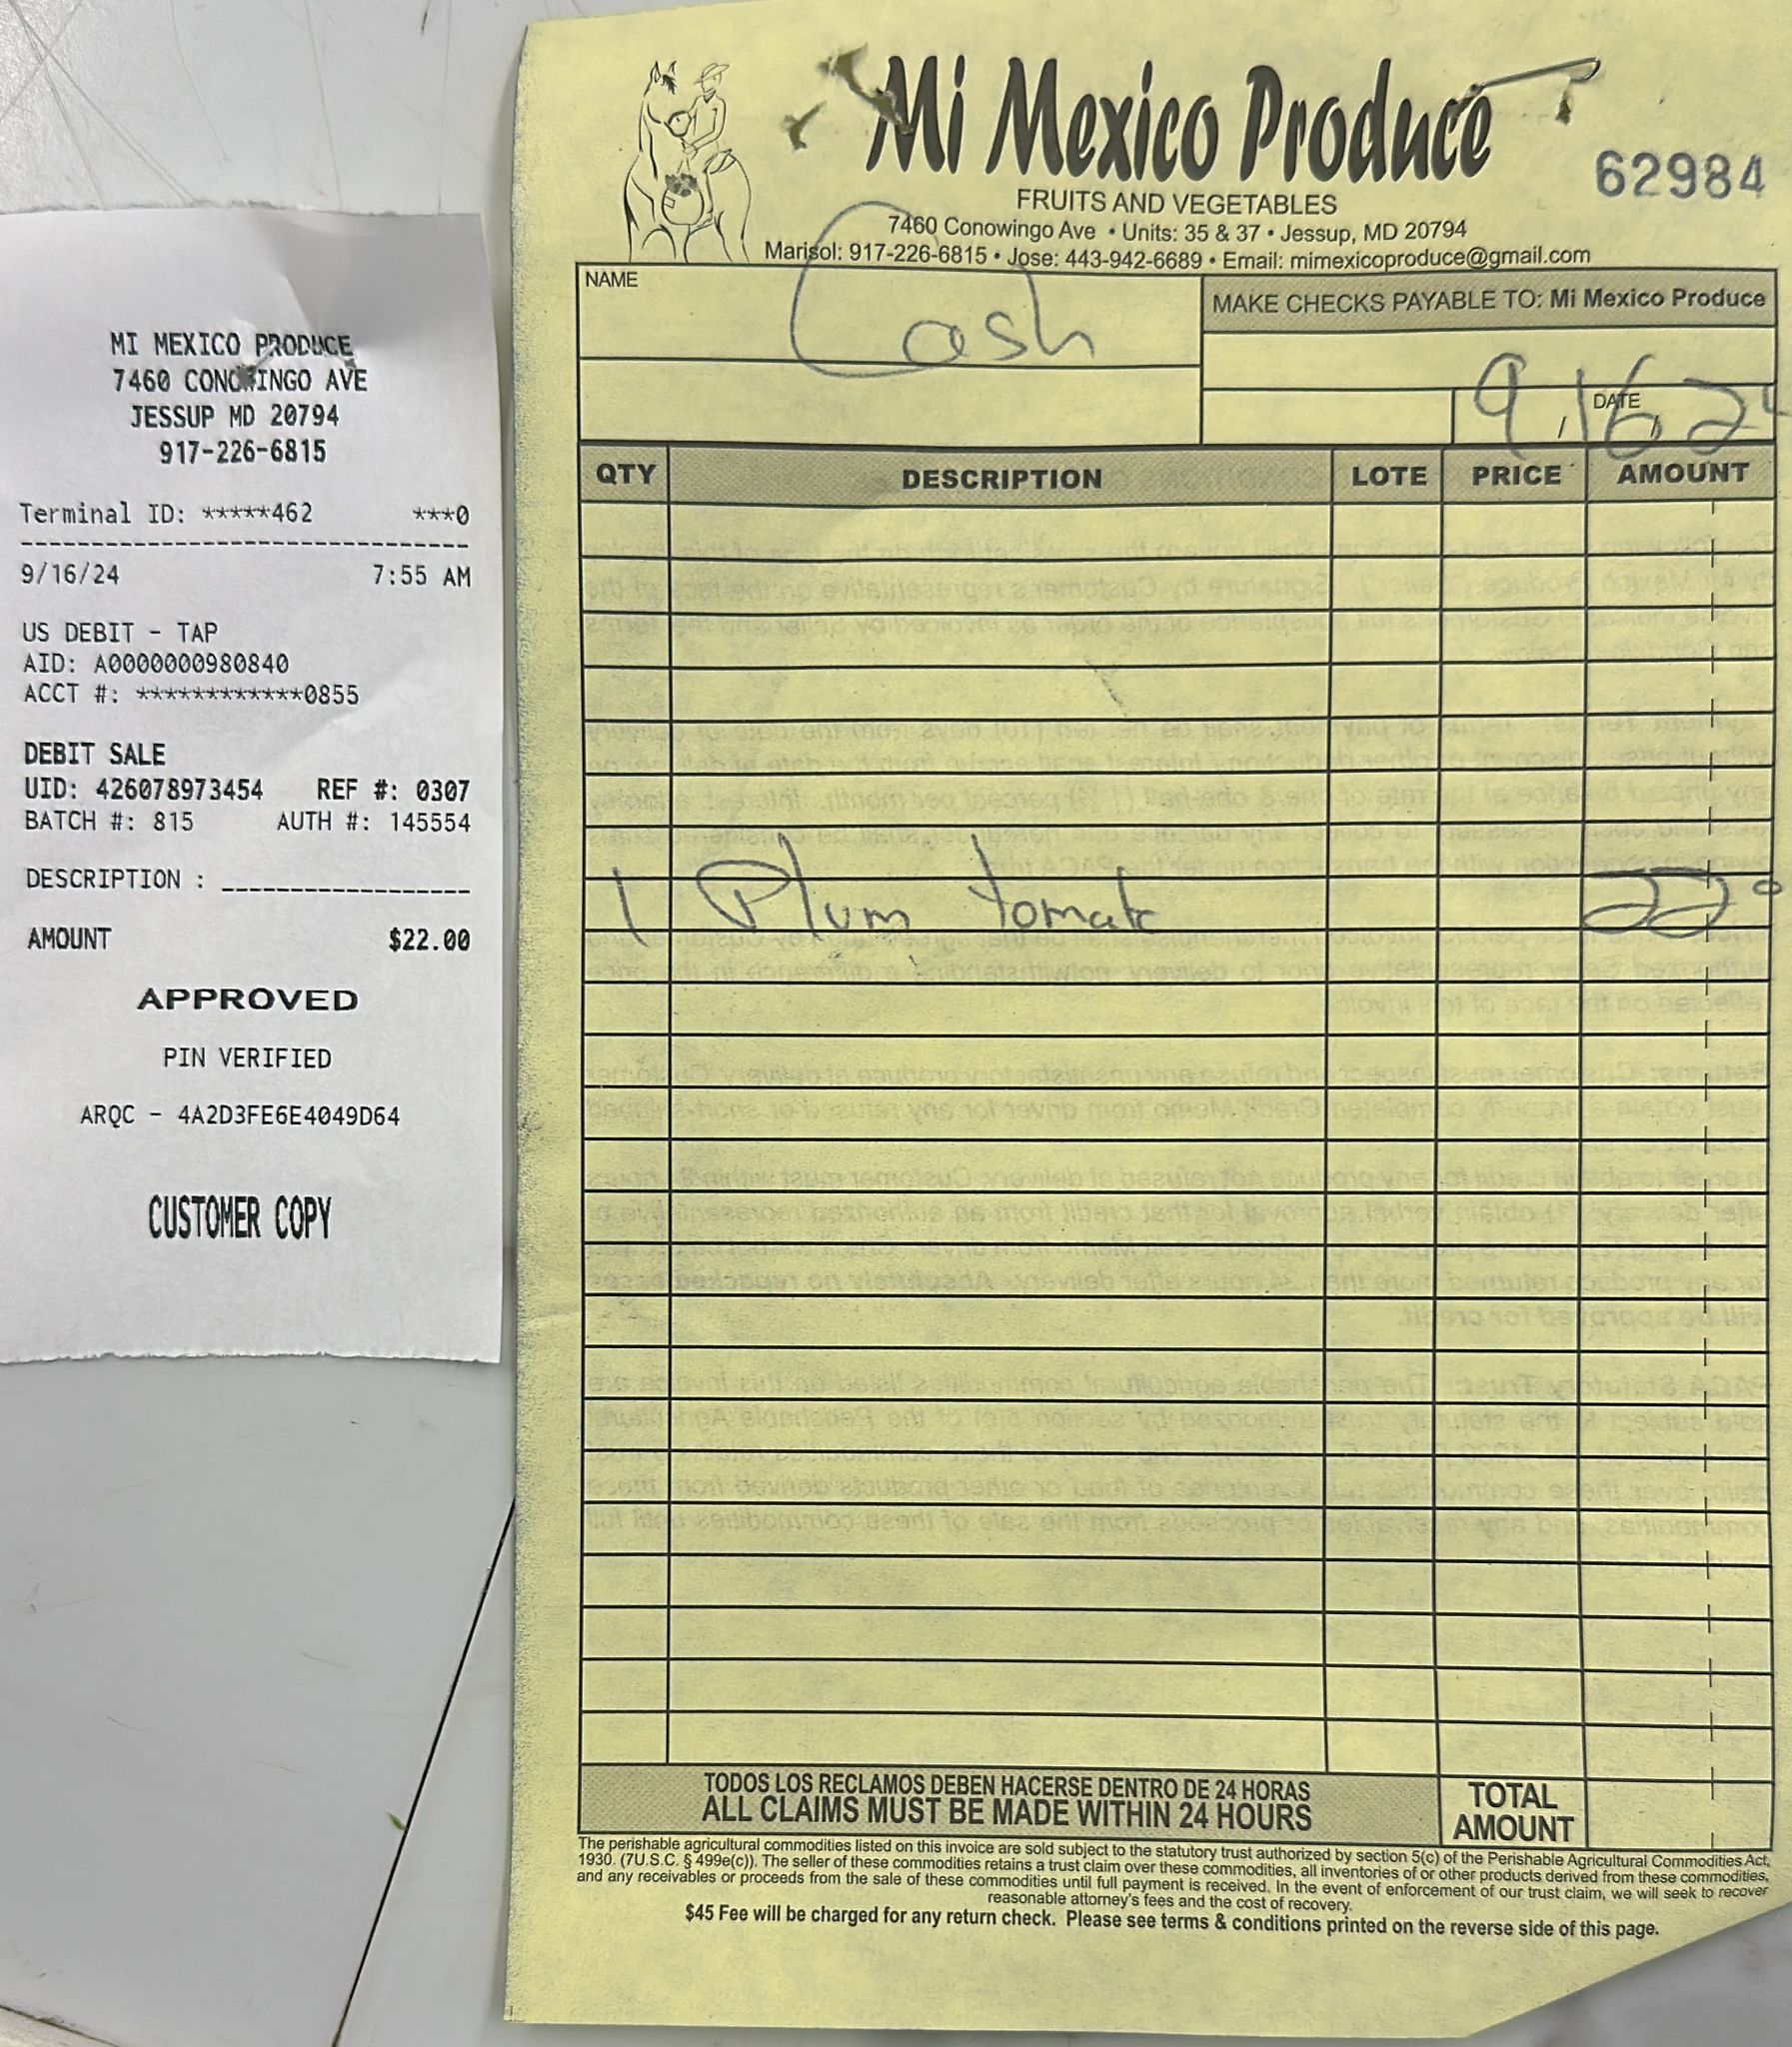 MI MEXICO PRODUCE
7460 CONOWINGO AVE
JESSUP MD 20794
917-226-6815
Terminal ID: *****462 ***0
9/16/24 7:55 AM
US DEBIT - TAP
AID: A0000000980840
ACCT #: ************0855
DEBIT SALE
UID: 426078973454 REF #: 0307
BATCH #: 815 AUTH #: 145554
DESCRIPTION : _________________
AMOUNT $22.00
APPROVED
PIN VERIFIED
ARQC - 4A2D3FE6E4049D64
CUSTOMER COPY
Mi Mexico Produce
62984
FRUITS AND VEGETABLES
7460 Conowingo Ave • Units: 35 & 37 • Jessup, MD 20794
Marisol: 917-226-6815 • Jose: 443-942-6689 • Email: mimexicoproduce@gmail.com
NAME
Cash
MAKE CHECKS PAYABLE TO: Mi Mexico Produce
DATE
9/16/24
QTY DESCRIPTION LOTE PRICE AMOUNT
1 Plum tomato 22 0
TODOS LOS RECLAMOS DEBEN HACERSE DENTRO DE 24 HORAS
ALL CLAIMS MUST BE MADE WITHIN 24 HOURS
TOTAL
AMOUNT
The perishable agricultural commodities listed on this invoice are sold subject to the statutory trust authorized by section 5(c) of the Perishable Agricultural Commodities Act,
1930. (7U.S.C. § 499e(c)). The seller of these commodities retains a trust claim over these commodities, all inventories of or other products derived from these commodities,
and any receivables or proceeds from the sale of these commodities until full payment is received. In the event of enforcement of our trust claim, we will seek to recover
reasonable attorney's fees and the cost of recovery.
$45 Fee will be charged for any return check. Please see terms & conditions printed on the reverse side of this page.